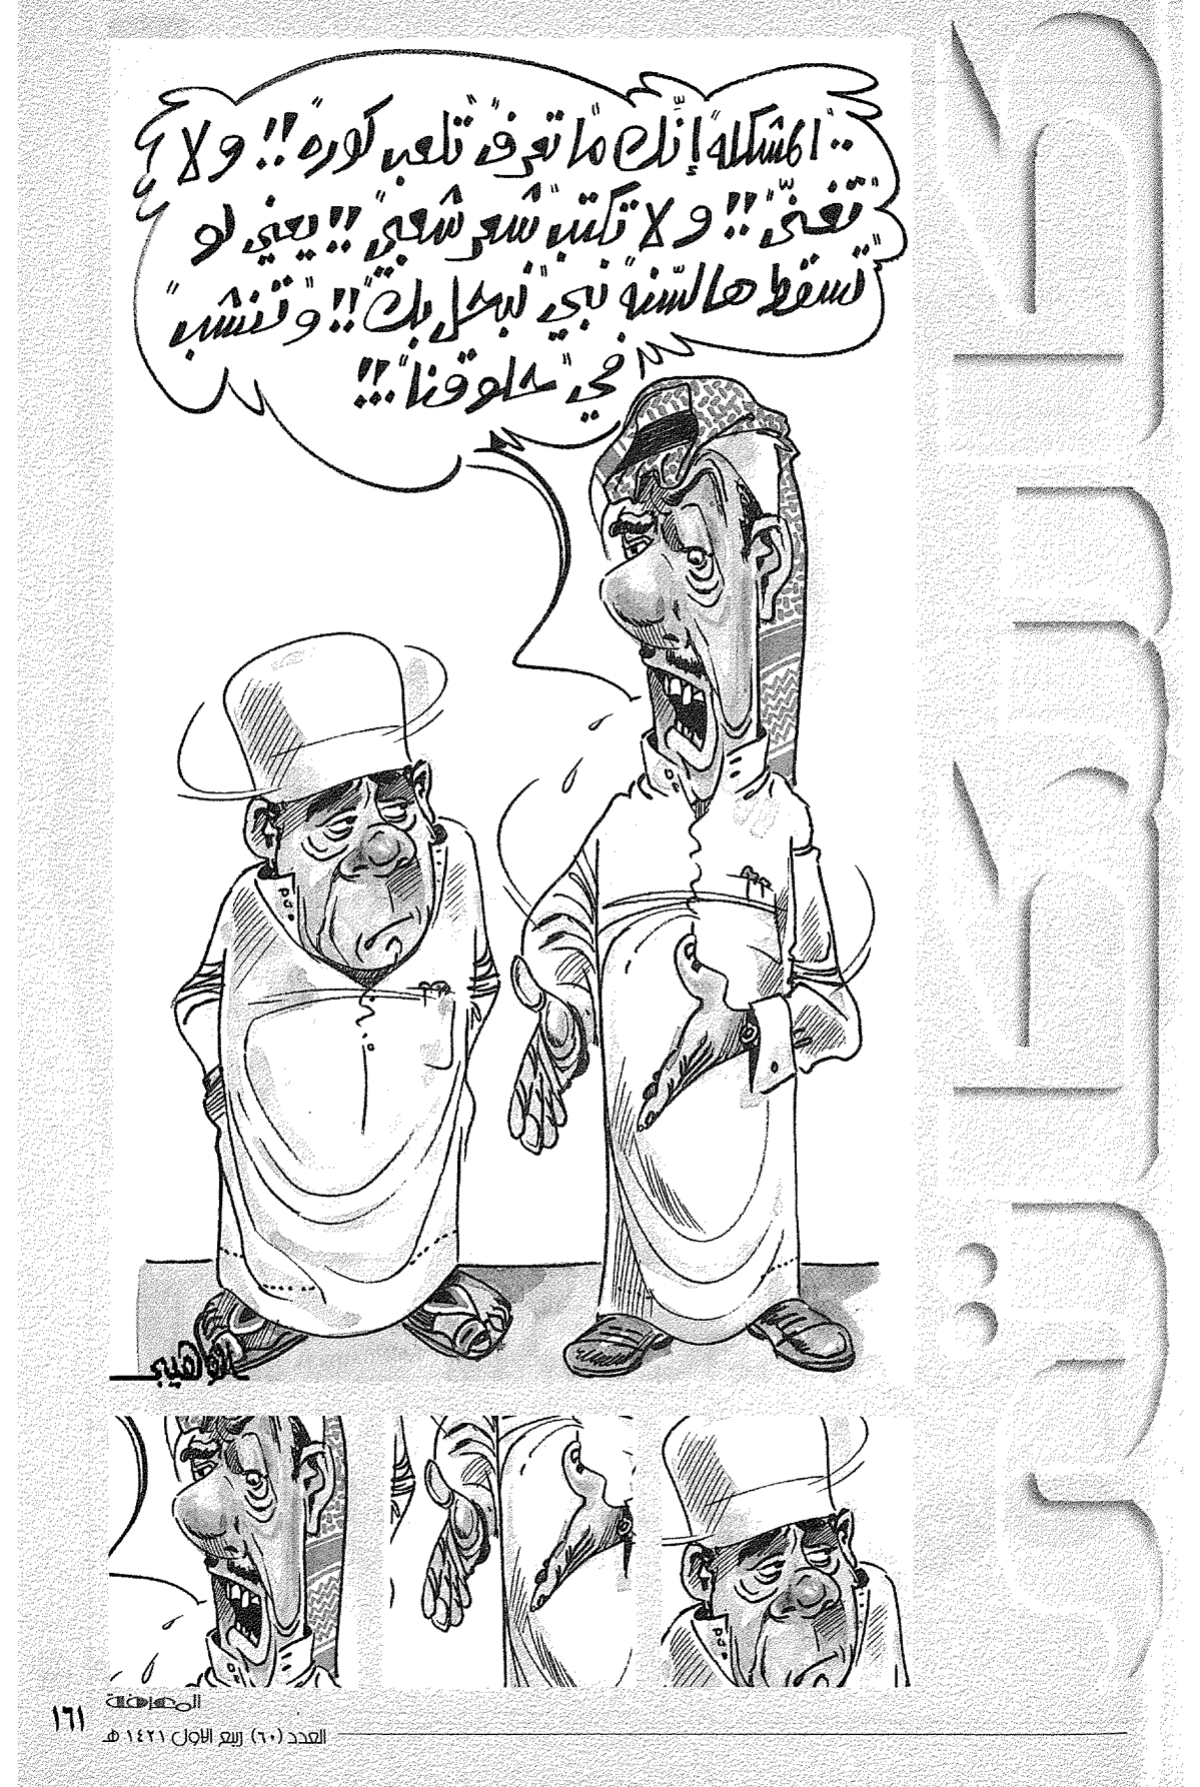 .. المشكلة إنّك ما تعرف تلعب كوره !! ولا
تغنّي !! ولا تكتب شعر شعبي !! يعني لو
تسقط هالسّنة نبي نبتحل بك !! وتنشب
في حلوقنا ..!!
الوهيبي
كاريكاتير
المعرفة
١٦١
العدد (٦٠) ربيع الأول ١٤٢١ هـ